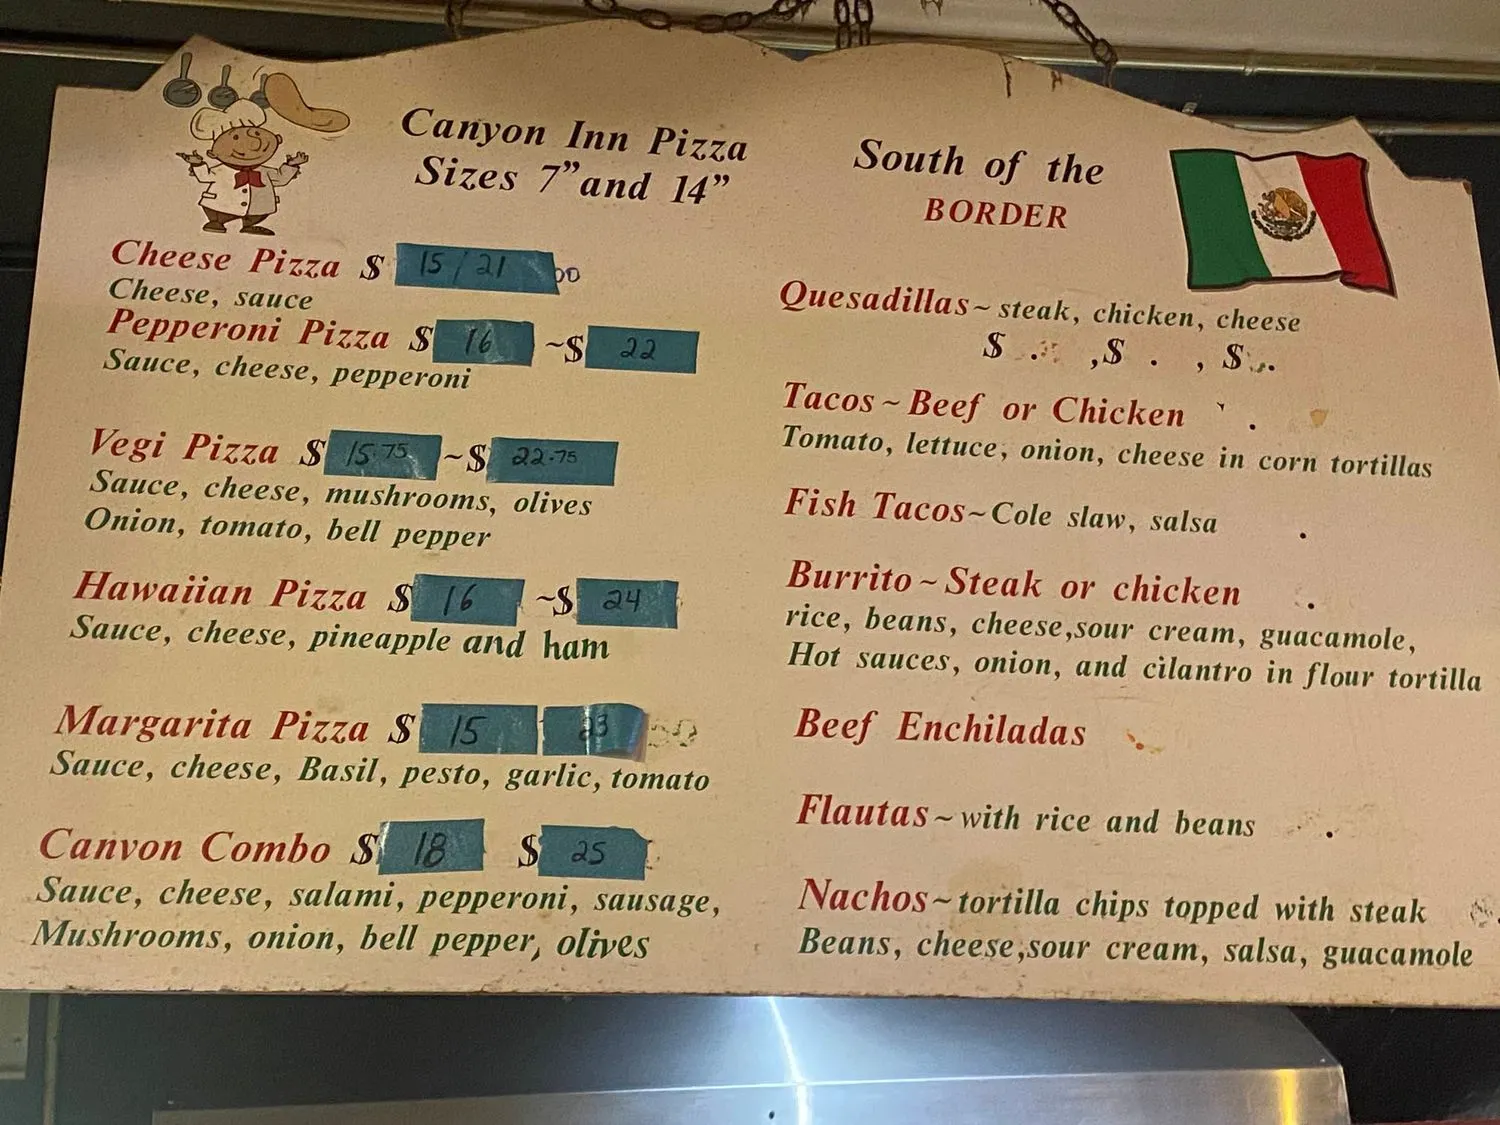 Canyon Inn Pizza
Sizes 7" and 14"
Cheese Pizza $ 15/21 00
Cheese, sauce
Pepperoni Pizza $ 16 ~$ 22
Sauce, cheese, pepperoni
Vegi Pizza $ 15.75 ~$ 22.75
Sauce, cheese, mushrooms, olives
Onion, tomato, bell pepper
Hawaiian Pizza $ 16 ~$ 24
Sauce, cheese, pineapple and ham
Margarita Pizza $ 15 23
Sauce, cheese, Basil, pesto, garlic, tomato
Canvon Combo $ 18 $ 25
Sauce, cheese, salami, pepperoni, sausage,
Mushrooms, onion, bell pepper, olives
South of the
BORDER
Quesadillas~ steak, chicken, cheese
$ . ,$ . , $ .
Tacos ~ Beef or Chicken .
Tomato, lettuce, onion, cheese in corn tortillas
Fish Tacos~Cole slaw, salsa .
Burrito ~ Steak or chicken .
rice, beans, cheese,sour cream, guacamole,
Hot sauces, onion, and cilantro in flour tortilla
Beef Enchiladas
Flautas ~ with rice and beans .
Nachos~tortilla chips topped with steak
Beans, cheese,sour cream, salsa, guacamole